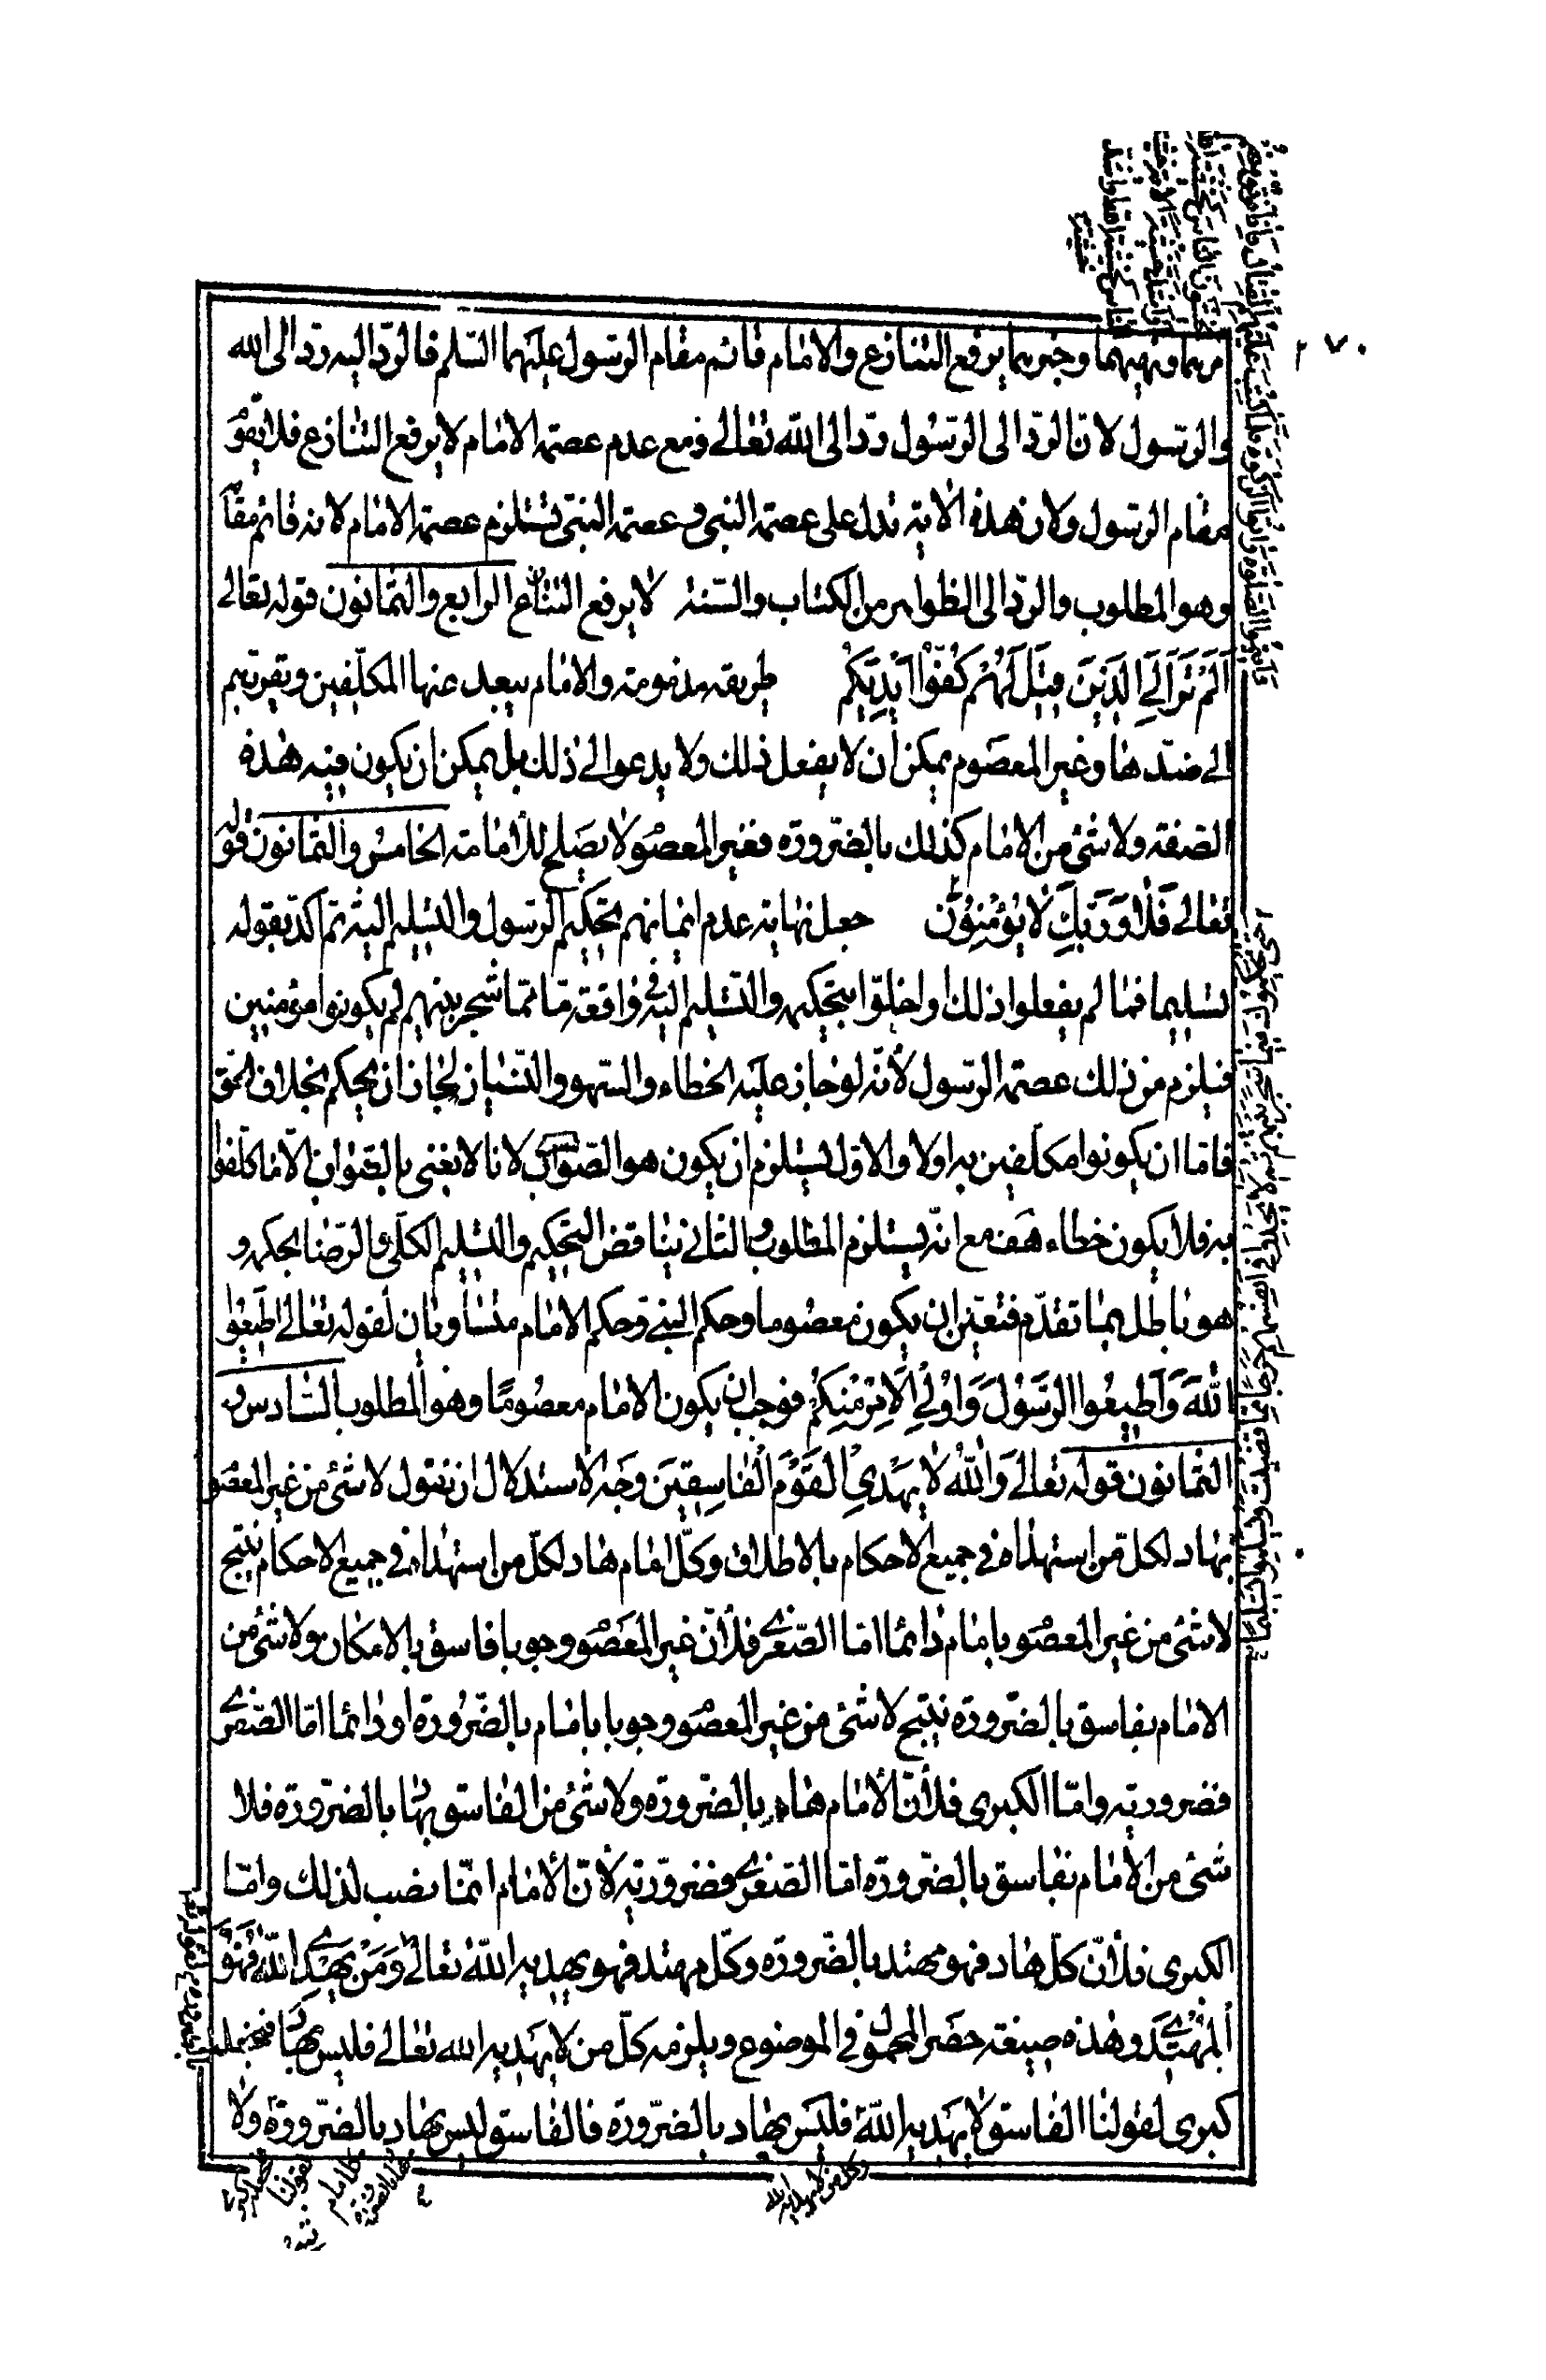 ٢٧٠
مرهما ونهيهما وخبرهما يرفع التنازع والامام قائم مقام الرسول عليهما السلم فالرد اليه رد الى الله
والرسول لان الرد الى الرسول رد الى الله تعالى ومع عدم عصمة الامام لا يرفع التنازع فلا يقو
مقام الرسول ولان هذه الاية تدل على عصمة النبى وعصمة النبى تستلزم عصمة الامام لانه قائم مقا
وهو المطلوب والرد الى الظواهر من الكتاب والسنة لا يرفع التنازع الرابع والثمانون قوله تعالى
اَلَمْ تَرَ اِلَى الَّذِينَ قِيلَ لَهُمْ كُفُّوا اَيْدِيَكُمْ طريقة مذمومة والامام يبعد عنها المكلفين ويقربهم
الى ضدها وغير المعصوم يمكن ان لا يفعل ذلك ولا يدعو الى ذلك بل يمكن ان يكون فيه هذه
الصفة ولا شئ من الامام كذلك بالضرورة فغير المعصو لا يصلح للامامة الخامس والثمانون قوله
تعالى فَلا وَرَبِّكَ لا يُؤْمِنُونَ جعل نهاية عدم ايمانهم تحكيم الرسول والتسليم اليه ثم اكد بقوله
تسليما فما لم يفعلوا ذلك او اخلوا بتحكيمه والتسليم اليه فى واقعة ما مما شجر بينهم لم يكونوا مؤمنين
فيلزم من ذلك عصمة الرسول لانه لو جاز عليه الخطاء والسهو والنسيان لجاز ان يحكم بخلاف الحق
فاما ان يكونوا مكلفين به اولا والاول يستلزم ان يكون هو الصواب لانا لا نعنى بالصواب الا ما كلفوا
به فلا يكون خطاء هف مع انه يستلزم المطلوب والثانى يناقض التحكيم والتسليم الكلى والرضا بحكمه و
هو باطل بما تقدم فتعين ان يكون معصوما وحكم النبى وحكم الامام متساويان لقوله تعالى اَطِيعُوا
اللهَ وَاَطِيعُوا الرَّسُولَ وَاُولِي الاَمْرِ مِنْكُمْ فوجب ان يكون الامام معصومًا وهو المطلوب السادس و
الثمانون قوله تعالى وَاللهُ لا يَهْدِي الْقَوْمَ الْفَاسِقِينَ وجه الاستدلال ان نقول لا شئ من غير المعصو
بهاد لكل من استهداه فى جميع الاحكام بالاطلاق وكل امام هاد لكل من استهداه فى جميع الاحكام ينتج
لا شئ من غير المعصو بامام دائما اما الصغرى فلان غير المعصو وجوبا فاسق بالامكان ولا شئ من
الامام بفاسق بالضرورة ينتج لا شئ من غير المعصو وجوبا بامام بالضرورة او دائما اما الصغرى
فضرورية واما الكبرى فلان الامام هاد بالضرورة ولا شئ من الفاسق بهاد بالضرورة فلا
شئ من الامام بفاسق بالضرورة اما الصغرى فضرورية لان الامام انما نصب لذلك واما
الكبرى فلان كل هاد فهو مهتد بالضرورة وكل مهتد فهو يهديه الله تعالى وَمَنْ يَهْدِي اللهُ فَهُوَ
الْمُهْتَدِي وهذه صيغة حصر المحمول فى الموضوع ويلزمه كل من لا يهديه الله تعالى فليس بهاد فنجعله
كبرى لقولنا الفاسق لا يهديه الله فليس بهاد بالضرورة فالفاسق ليس بهاد بالضرورة ولا
وكل من لا يهديه الله